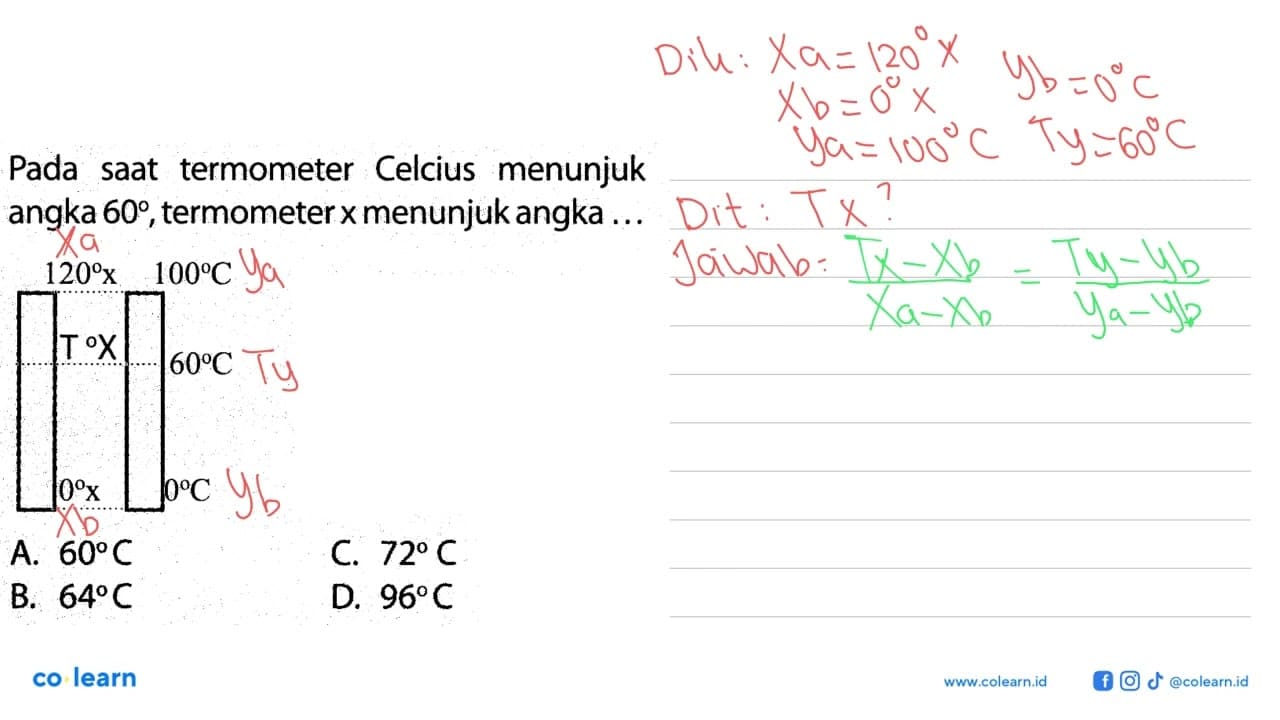 Pada saat termometer Celcius menunjuk
angka 60°, termometer x menunjuk angka ...
Xa
120°x 100°C Ya
T °X
60°C Ty
0°x 0°C Yb
Xb
A. 60° C C. 72° C
B. 64° C D. 96° C
Dik: Xa = 120°X
Xb = 0°X
Ya = 100°C
Yb = 0°C
Ty = 60°C
Dit: Tx?
Jawab: Tx - Xb / Xa - Xb = Ty - Yb / Ya - Yb
co learn
www.colearn.id @colearn.id